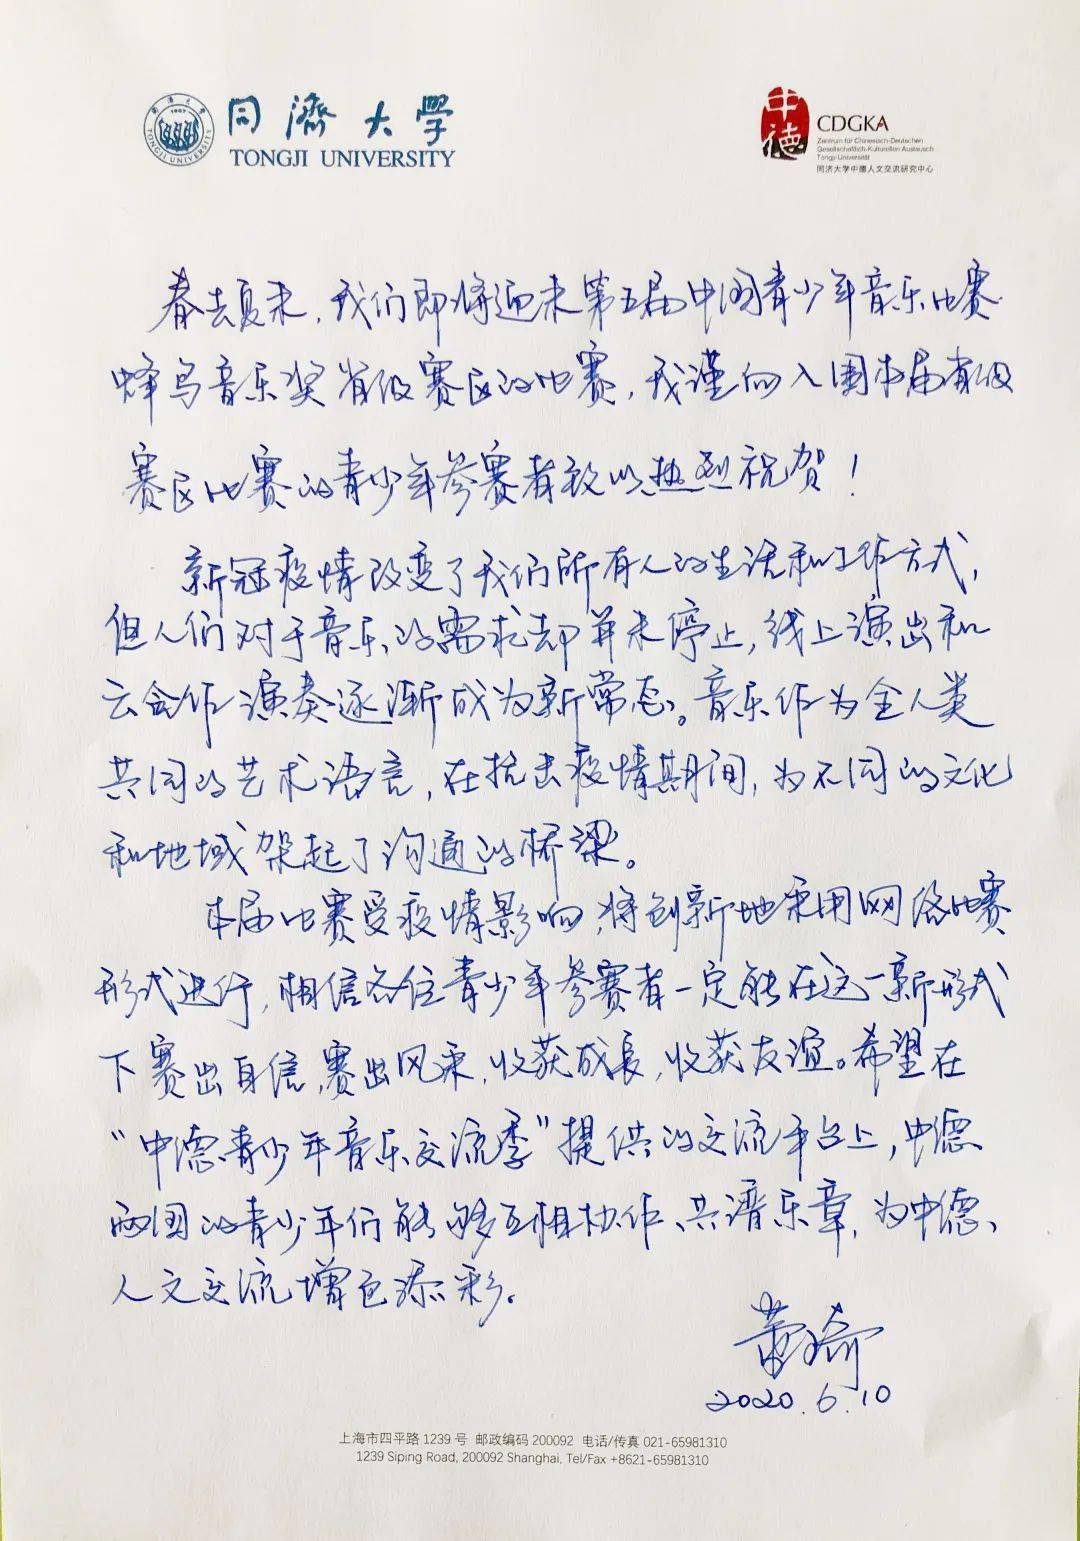 同濟大學
TONGJI UNIVERSITY
中德
CDGKA
Zentrum für Chinesisch-Deutschen
Gesellschaftlich-Kulturellen Austausch
Tongji-Universität
同济大学中德人文交流研究中心
春去夏来，我们即将迎来第五届中国青少年音乐比赛
蜂鸟音乐奖省级赛区的比赛，我谨向入围本届省级
赛区比赛的青少年参赛者致以热烈祝贺！
新冠疫情改变了我们所有人的生活和工作方式，
但人们对于音乐的需求却并未停止，线上演出和
云合作演奏逐渐成为新常态。音乐作为全人类
共同的艺术语言，在抗击疫情期间，为不同的文化
和地域架起了沟通的桥梁。
本届比赛受疫情影响，将创新地采用网络比赛
形式进行，相信各位青少年参赛者一定能在这一新形式
下赛出自信，赛出风采，收获成长，收获友谊。希望在
“中德青少年音乐交流季”提供的交流平台上，中德
两国的青少年们能够互相协作、共谱乐章，为中德
人文交流增色添彩。
董琦
2020.6.10
上海市四平路 1239 号 邮政编码 200092 电话/传真 021-65981310
1239 Siping Road, 200092 Shanghai, Tel/Fax +8621-65981310